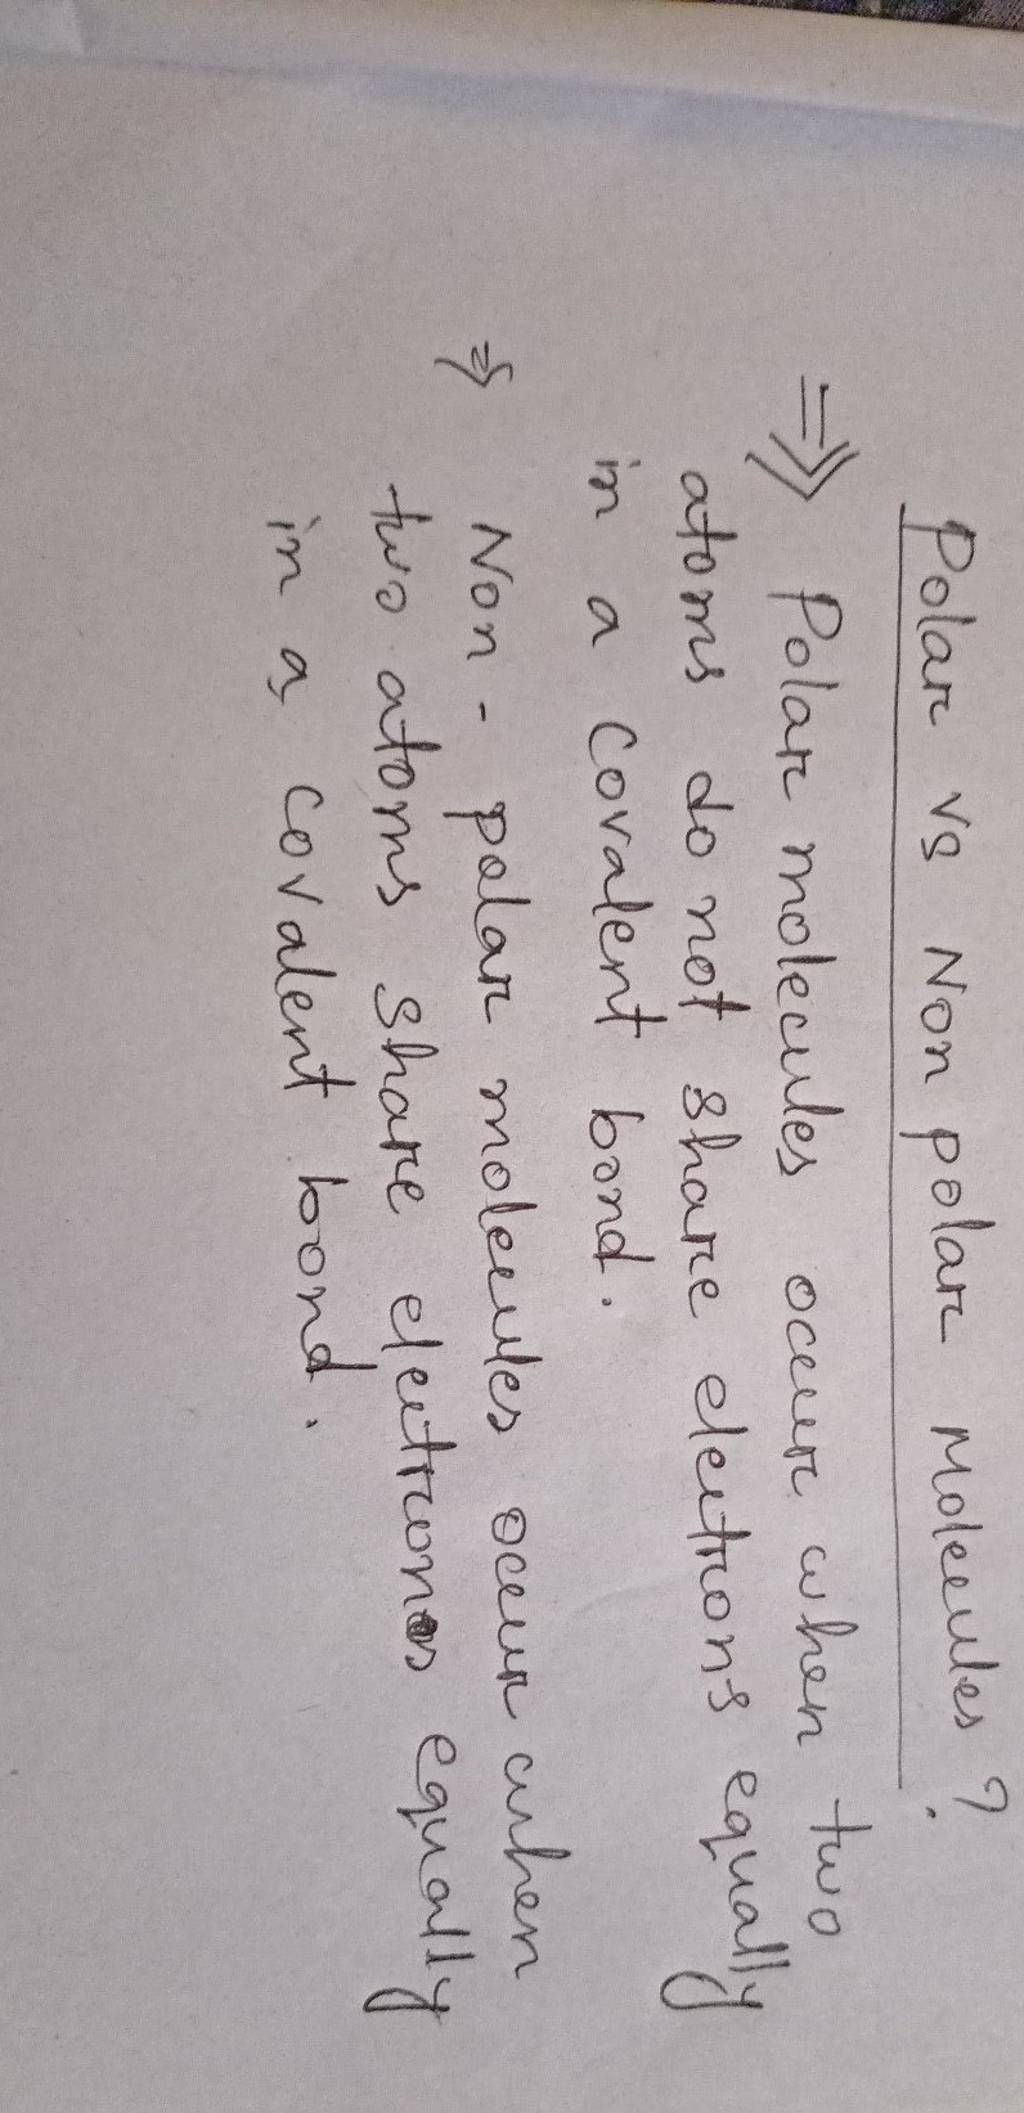 Polar vs Non polar Molecules ?
⇒ Polar molecules occur when two
atoms do not share electrons equally
in a covalent bond.
⇒ Non - polar molecules occur when
two atoms share electrons equally
in a covalent bond.